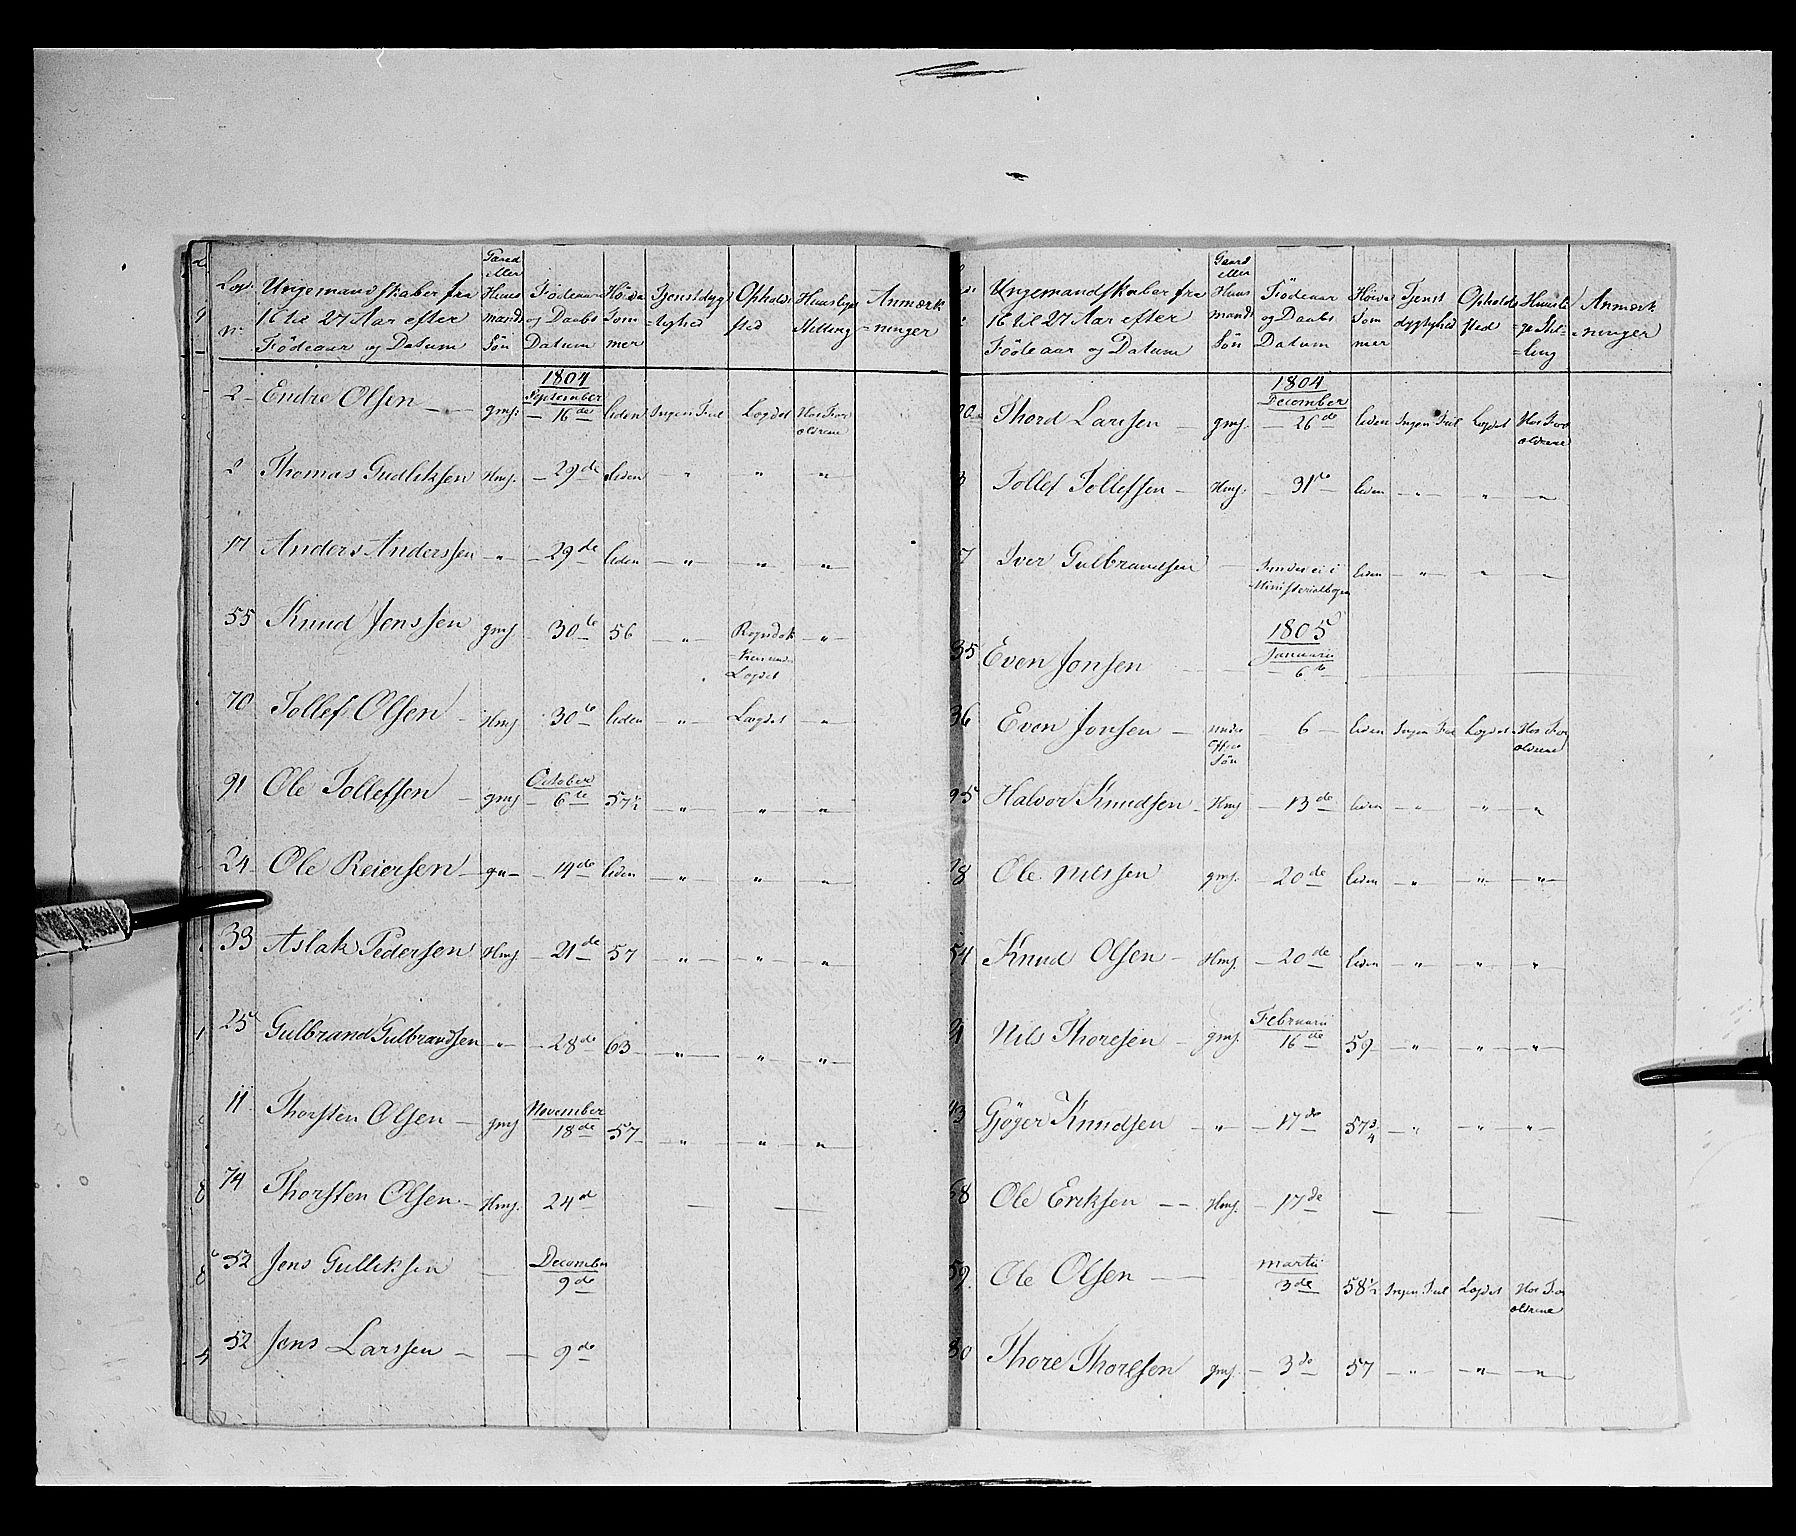 Lægd Nr. Ungemandskaber fra 16 til 27 Aar efter Födeaar og Datum Gaard eller Huus mands Sön Födeaar og Daabs Datum Höide Tom mer Tjenstdyg =tighed Opholds sted Huuslige Stilling Anmærk =ninger
1804
September
2 Endre Olsen gms. 16de liden Ingen Feil Lægdet Hos For ældrene
2 Thomas Gudliksen Hms. 29de liden " " "
17 Anders Anderssen " 29de liden " " "
55 Knud Jenssen gms 30te 56 "
Lægdet "
70 Tollef Olsen Hms 30te liden " Lægdet "
October
91 Ole Tollefsen gms 6te 57½ " " "
24 Ole Reiersen 14de liden " " "
33 Aslak Pedersen Hms 21de 57 " " "
25 Gulbrand Gulbrandsen " 28de 63 " " "
November
11 Thorsten Olsen gms 18de 57 " " "
74 Thorsten Olsen Hms. 24d
December
52 Jens Gulliksen 9de
52 Jens Larssen 9de
Ungemandskaber fra 16 til 27 Aar efter Födeaar og Datum Gaard eller Huus mands Sön Födeaar og Daabs Datum Höide Tom mer Tjenst dygtighed Opholds sted Huusli =ge Stil =ling Anmærk =ninger
1804
December
Thord Larssen gms. 26de liden Ingen Feil Lægdet Hos For ældrene
Tollef Tollefsen Hms. 31te liden " " "
7 Iver Gulbrandsen Findes ei i Ministerialbogen liden " " "
1805
Januarii
35 Even Jonsen 6te
36 Even Jonsen under Offic Sön 6 liden Ingen Feil Lægdet Hos For ældrene
95 Halvor Knudsen Hms 13de liden " " "
Ole Nilssen gms. 20de liden " " "
54 Knud Olsen Hms. 20de liden " " "
Februarii
Nils Thoresen gms. 16de 59 " " "
43 Gjöger Knudsen " 17de 57¾ " " "
68 Ole Eriksen Hms. 17de
Martii
59. Ole Olsen 3de 58½ Ingen Feil Lægdet Hos For ældrene
80 Thore Thoresen gms. 3de 57 " " "